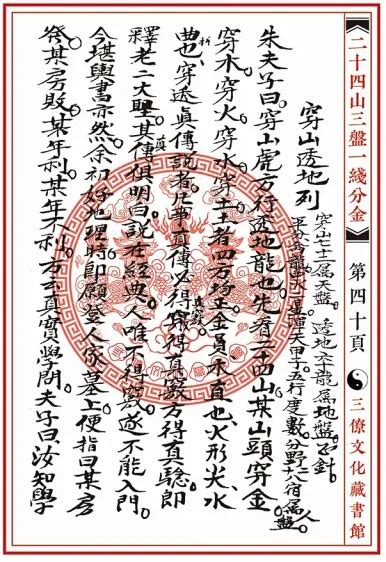 《二十四山三盤一綫分金》 第四十頁 三僚文化藏書館
穿山透地列
穿山七十二属天盤。透地六十龍属地盤正針
龍水。渾天甲子五行度數。分野二十八宿属人盤。
朱夫子曰穿山虎方行透地龍也。先看二十四山某山頭穿金
穿木。穿火。穿水。穿土。土者四方正。金員。木直也。火形尖。水
折
曲也。穿透真傳説者。凡事真傳必得竅。得真竅方得真騐。即
釋老二大聖。其傳俱明白説在經典。人唯不得竅。遂不能入門。
今堪輿書亦然。余初好地理時即願登人家墓上。便指曰某房
發某房敗。某年利某年不利。方云真實學問。夫子曰。汝知學